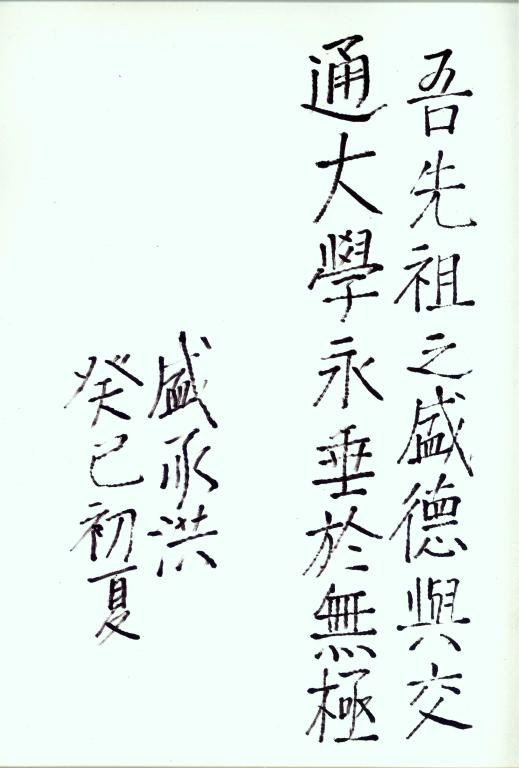 吾先祖之盛德與交
通大學永垂於無極
盛承洪
癸巳初夏